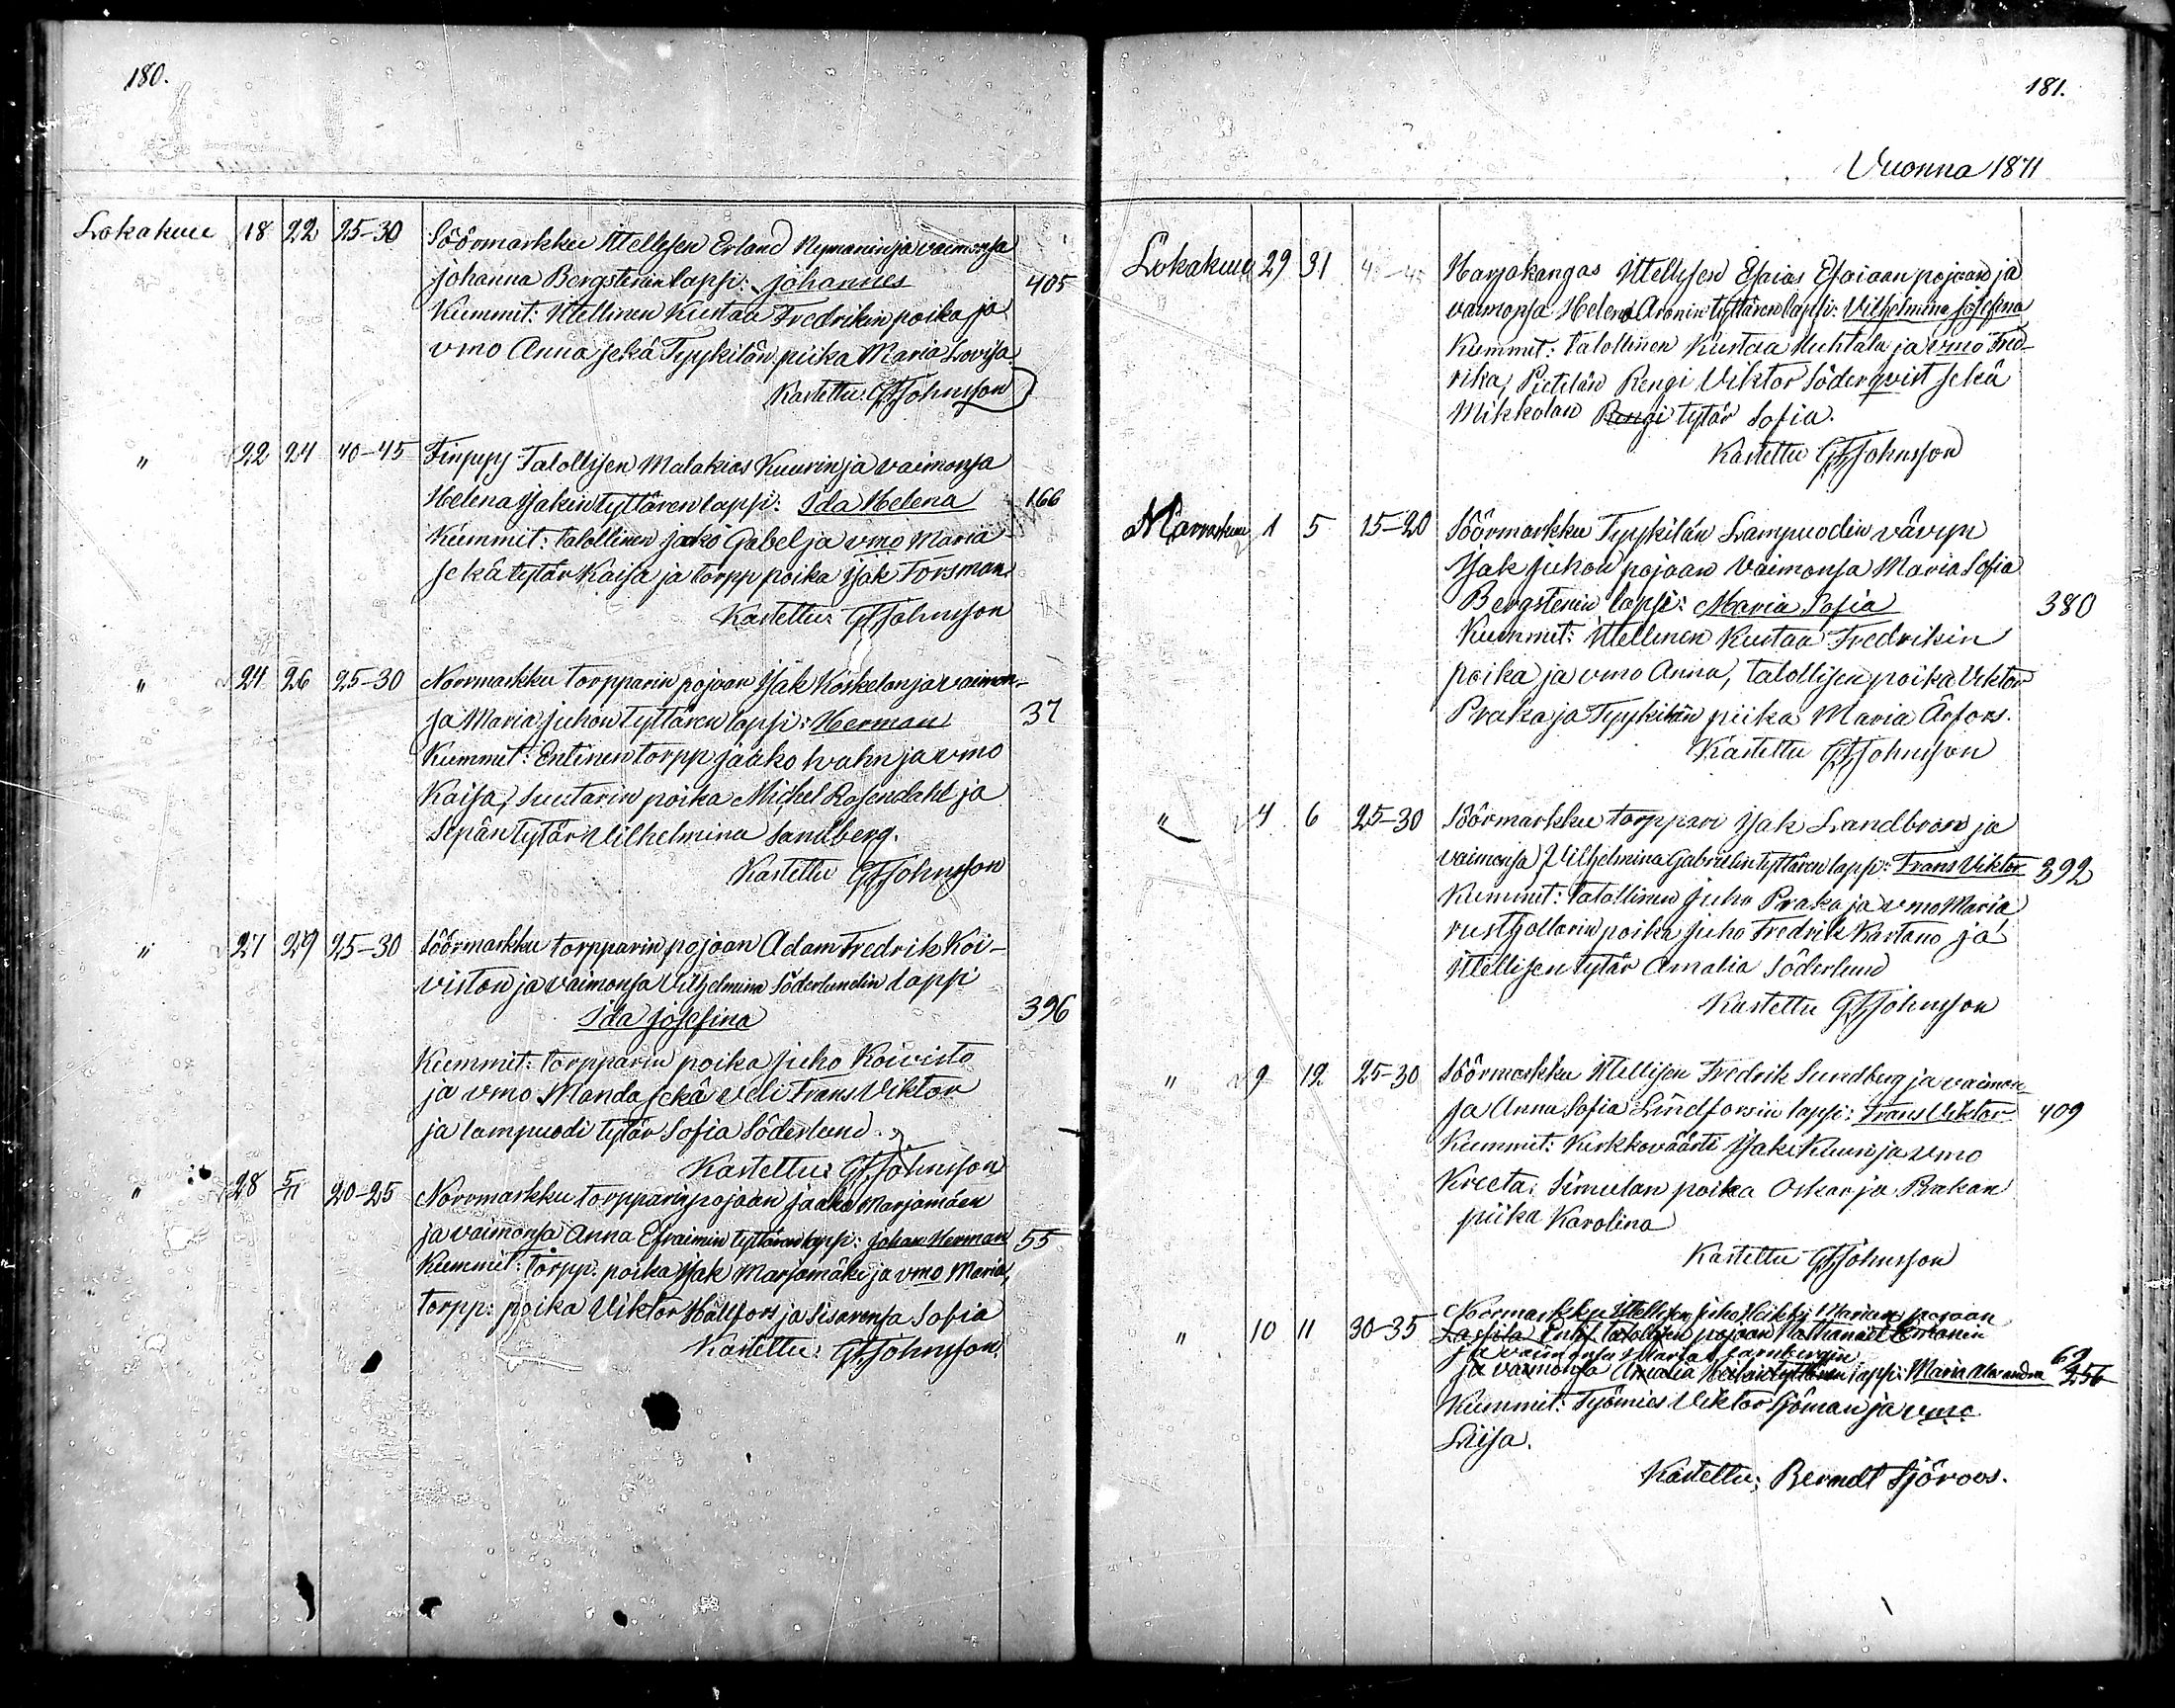 180.
Lokakuu 18 22 25-30 Söörmarkku Ittellisen Erland Nymanin ja vaimonsa
Johanna Bergstenin lapsi: Johannes 405
Kummit: Ittellinen Kustaa Fredrikin poika ja
vmo Anna sekä Tyykilän piika Maria Lovisa
Kastettu: GFJohnsson
" 22 24 40-45 Finpyy Talollisen Malakias Kuurin ja vaimonsa
Helena Isakin tyttären lapsi: Ida Helena 166
Kummit: talollinen Jaako Gabel ja vmo Maria
sekä tytär Kaisa ja torpp poika Isak Forsman
Kastettu: GFJohnsson
" 24 26 25-30 Norrmarkku torpparin pojoan Isak Koskelon ja vaimon-
sa Maria Juhon tyttären lapsi: Herman 37
Kummit: Entinen torpp Jaako Wahn ja vmo
Kaisa, Suutarin poika Mickel Rosendahl ja
Sepän tytär Vilhelmina Sandberg.
Kastettu GFJohnsson
" 27 29 25-30 Söörmarkku torpparin pojoan Adam Fredrik Koi-
viston ja vaimonsa Vilhelmina Söderlundin Lapsi
Ida Josefina 396
Kummit: torpparin poika Juho Koivisto
ja vmo Manda sekä veli Frans Viktor
ja lampuodi tytär Sofia Söderlund.
Kastettu: GFJohnsson
" 28 5/11 20-25 Norrmarkku torpparin pojoan Jaako Marjamäen
ja vaimonsa Anna Efraimin tyttären lapsi: Johan Herman 55
Kummit: torpp. poika Isak Marjamäki ja vmo Maria,
torpp: poika Viktor Hällfors ja Sisarensa Sofia
Kastettu: GFJohnsson.
181.
Vuonna 1871
Lokakuu 29 31 Harjakangas Ittellisen Esaias Esaiaan pojoan ja
vaimonsa Helena Aronin tyttären lapsi: Vilhelmina Josefina
Kummit: talollinen Kustaa Huhtala ja vmo Fred-
rika, Pietilän Rengi Viktor Söderqvist sekä
Mikkolan Rengi tytär Sofia.
Kastettu GFJohnsson
Marraskuu 1 5 15-20 Söörmarkku Tyykilän Lampuodin vävyn
Isak Juhon pojoan vaimonsa Maria Sofia
Bergstenin lapsi: Maria Sofia 380
Kummit: Ittellinen Kustaa Fredrikin
poika ja vmo Anna, talollisen poika Viktor
Praka ja Tyykilän piika Maria Årfors.
Kastettu GFJohnsson
" 4 6 25-30 Söörmarkku torppari Isak Landbron ja
vaimonsa Vilhelmina Gabrielin tyttären lapsi: Frans Viktor 392
Kummit: talollinen Juho Praka ja vmo Maria
rusthollarin poika Juho Fredrik Kartano ja
Ittellisen tytär Amalia Söderlund
Kastettu GFJohnsson
" 9 12 25-30 Söörmarkku Ittellisen Fredrik Sundberg ja vaimon-
sa Anna Sofia Lindforsin lapsi: Frans Viktor 409
Kummit: Kirkkoväärti Isaki Kuuri ja vmo
Kreeta, Simulan poika Oskar ja Prakan
piika Karolina
Kastettu GFJohnsson
Norrmarkku Ittellisen Juho Heikki Marian pojoan
" 10 11 30-35 Lassila Entis talollisen pojoan Nathanael Ermanin
ja vaimonsa Maria
ja vaimonsa Amalia Heikin tyttären lapsi: Maria Alexandra 69 256
Kummit: Työmies Viktor Sjöman ja vmo
Liisa.
Kastettu: Berndt Sjöroos.